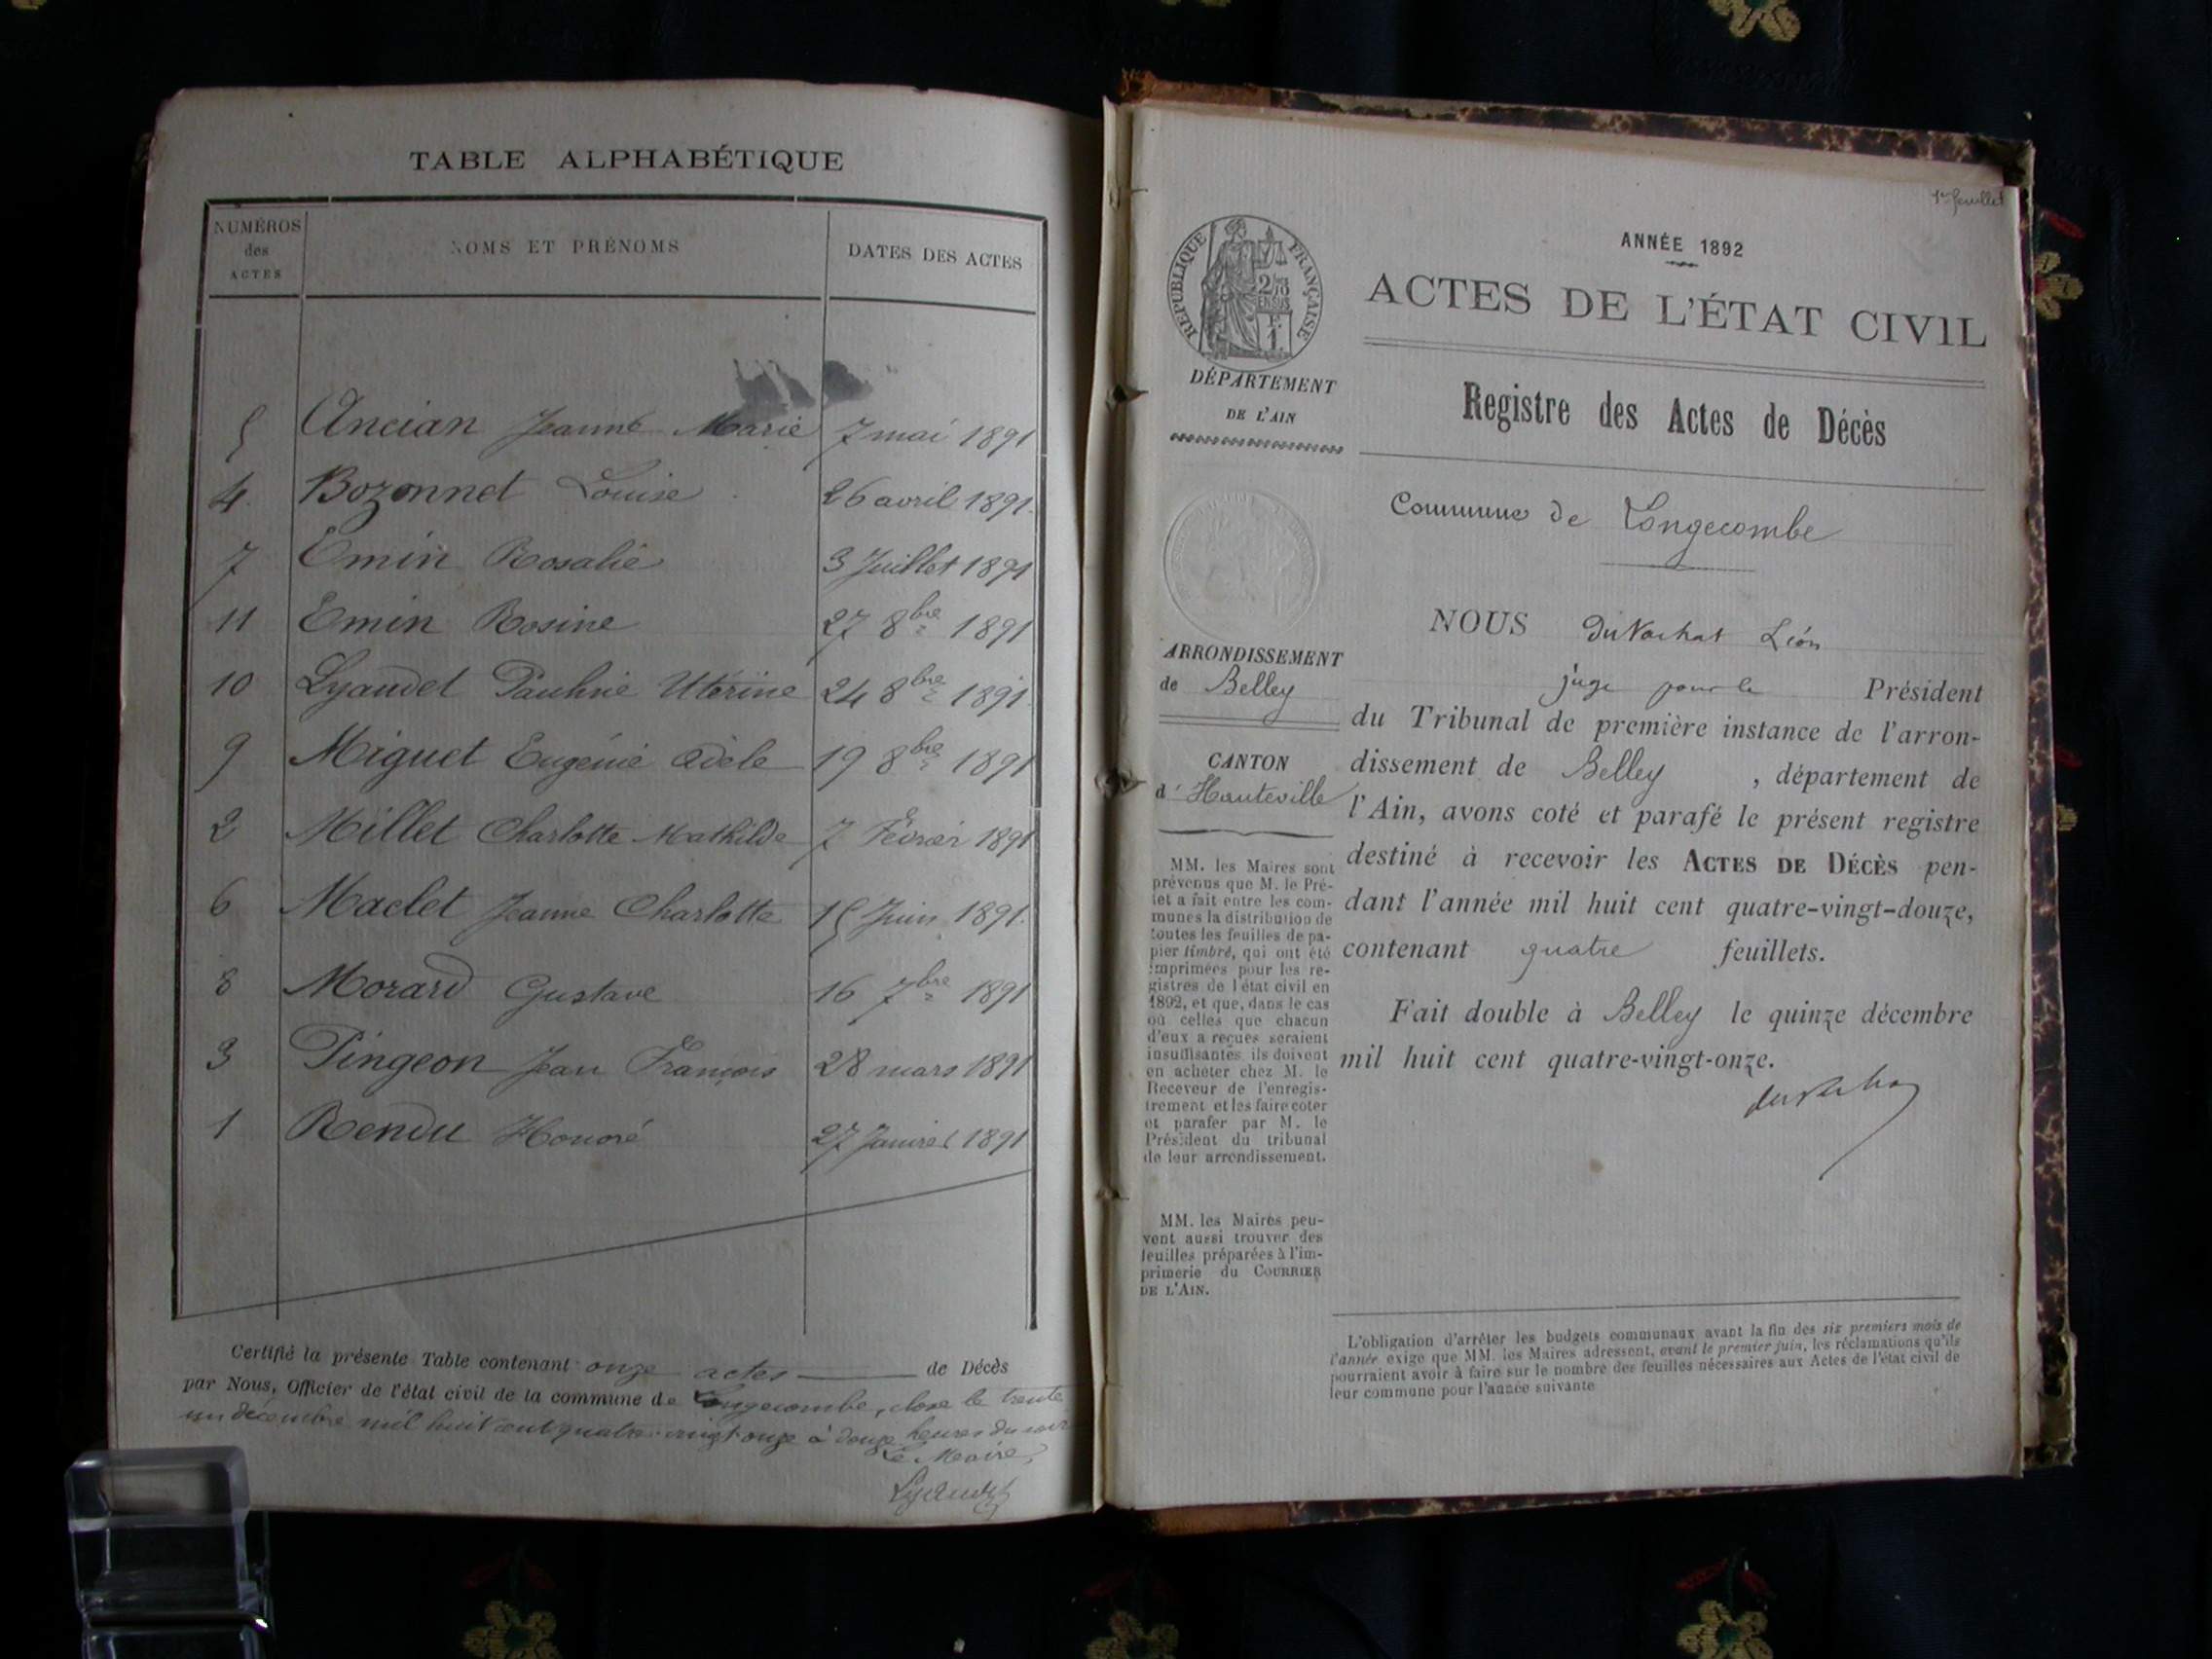 TABLE ALPHABÉTIQUE
NUMÉROS des ACTES NOMS ET PRÉNOMS DATES DES ACTES
5 Ancian Jeanne Marie 7 mai 1891
4. Bozonnet Louise 26 avril 1891.
7 Emin Rosalie 3 Juillet 1891
11 Emin Rosine 27 8bre 1891
10 Lyaudet Pauline Utérine 24 8bre 1891.
9 Miguet Eugénie Adèle 19 8bre 1891
2 Millet Charlotte Mathilde 7 Février 1891
6 Maclet Jeanne Charlotte 15 Juin 1891.
8 Morard Gustave 16 7bre 1891
3 Pingeon Jean François 28 mars 1891
1 Rendu Honoré 27 Janvier 1891
Certifié la présente Table contenant onze actes de Décès
par Nous, Officier de l'état civil de la commune de Longecombe, close le trente
un décembre mil huit cent quatre-vingt-onze à douze heures du soir
Le Maire,
Lyaudet
1er feuillet
RÉPUBLIQUE FRANÇAISE
2/10
EN SUS
F.
1.
ANNÉE 1892
ACTES DE L'ÉTAT CIVIL
DÉPARTEMENT
DE L'AIN
Registre des Actes de Décès
Commune de Longecombe
ARRONDISSEMENT
de Belley
CANTON
d' Hauteville
MM. les Maires sont
prévenus que M. le Pré-
fet a fait entre les com-
munes la distribution de
toutes les feuilles de pa-
pier timbré, qui ont été
imprimées pour les re-
gistres de l'état civil en
1892, et que, dans le cas
où celles que chacun
d'eux a reçues seraient
insuffisantes, ils doivent
en acheter chez M. le
Receveur de l'enregis-
trement et les faire coter
et parafer par M. le
Président du tribunal
de leur arrondissement.
MM. les Maires peu-
vent aussi trouver des
feuilles préparées à l'im-
primerie du COURRIER
DE L'AIN.
NOUS duVachat Léon
juge pour le Président
du Tribunal de première instance de l'arron-
dissement de Belley , département de
l'Ain, avons coté et parafé le présent registre
destiné à recevoir les ACTES DE DÉCÈS pen-
dant l'année mil huit cent quatre-vingt-douze,
contenant quatre feuillets.
Fait double à Belley le quinze décembre
mil huit cent quatre-vingt-onze.
L'obligation d'arrêter les budgets communaux avant la fin des six premiers mois de
l'année exige que MM. les Maires adressent, avant le premier juin, les réclamations qu'ils
pourraient avoir à faire sur le nombre des feuilles nécessaires aux Actes de l'état civil de
leur commune pour l'année suivante